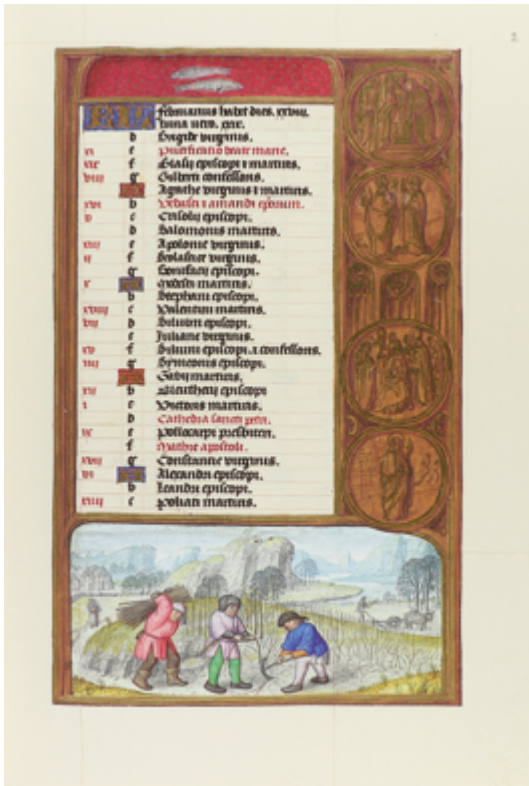 2
KL Februarius habet dies. xxviii.
luna vero. xxix.
d Brigide virginis.
xi e Purificatio beate marie.
xix f Blasii episcopi et martiris.
viii g Gilberti confessoris.
A Agathe virginis et martiris.
xvi b Vedasti et amandi episcoporum.
v c episcopi.
d Salomonis martiris.
xiii e Apolonie virginis.
ii f Scolastice virginis.
g episcopi.
x A martiris.
b Stephani episcopi.
xviii c Valentini martiris.
vii d episcopi.
e Juliane virginis.
xv f episcopi et confessoris.
iiii g Symeonis episcopi.
A Gabini martiris.
xii b Eleutherii episcopi
i c Victoris martiris.
d Cathedra sancti petri.
ix e Policarpi presbiteri.
f Mathie apostoli.
xvii g Constantie virginis.
vi A Alexandri episcopi.
b Leandri episcopi.
xiiii c martiris.